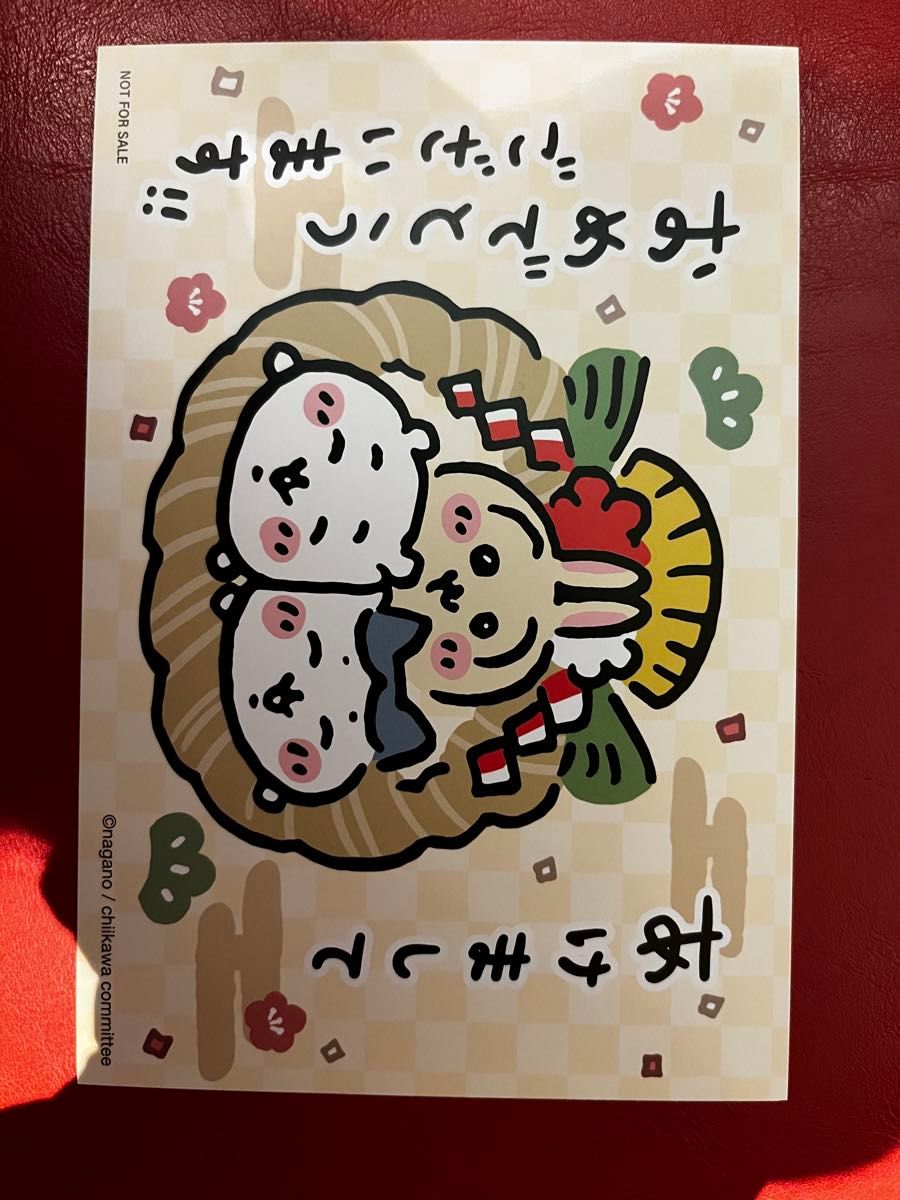 あけまして
おめでとう
ございます!!
NOT FOR SALE
©nagano / chiikawa committee